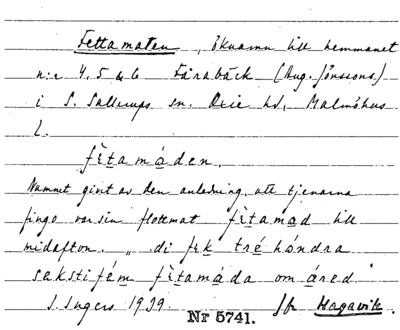 Fettamaten, öknamn till hemmanet
n:r 4, 5 & 6 Fårabäck (Aug. Jönssons)
i S. Sallerups sn. Oxie hd, Malmöhus
l.
fi̱tamá̱den.
Namnet givit av den anledning att tjenarna
fingo var sin flottemat fi̱tamad till
midafton. „ di fi̱k tré̱ hóndra
sakstifém fi̱tamá̱da om á̱red"
I. Ingers 1939.
Nr 5741.